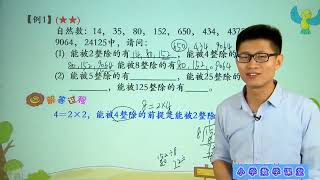 【例1】(★★)
自然数：14, 35, 80, 152, 650, 434, 437
9064, 24125中，请问：
(1) 能被2整除的有14, 80, 152, 能被4整除
80, 152, 9064 能被8整除的有80, 152, 9064
(2) 能被5整除的有 能被25整除的
能被125整除的有 。
解答过程
8=2×4
4=2×2, 能被4整除的前提是能被2整除
小学数学课堂